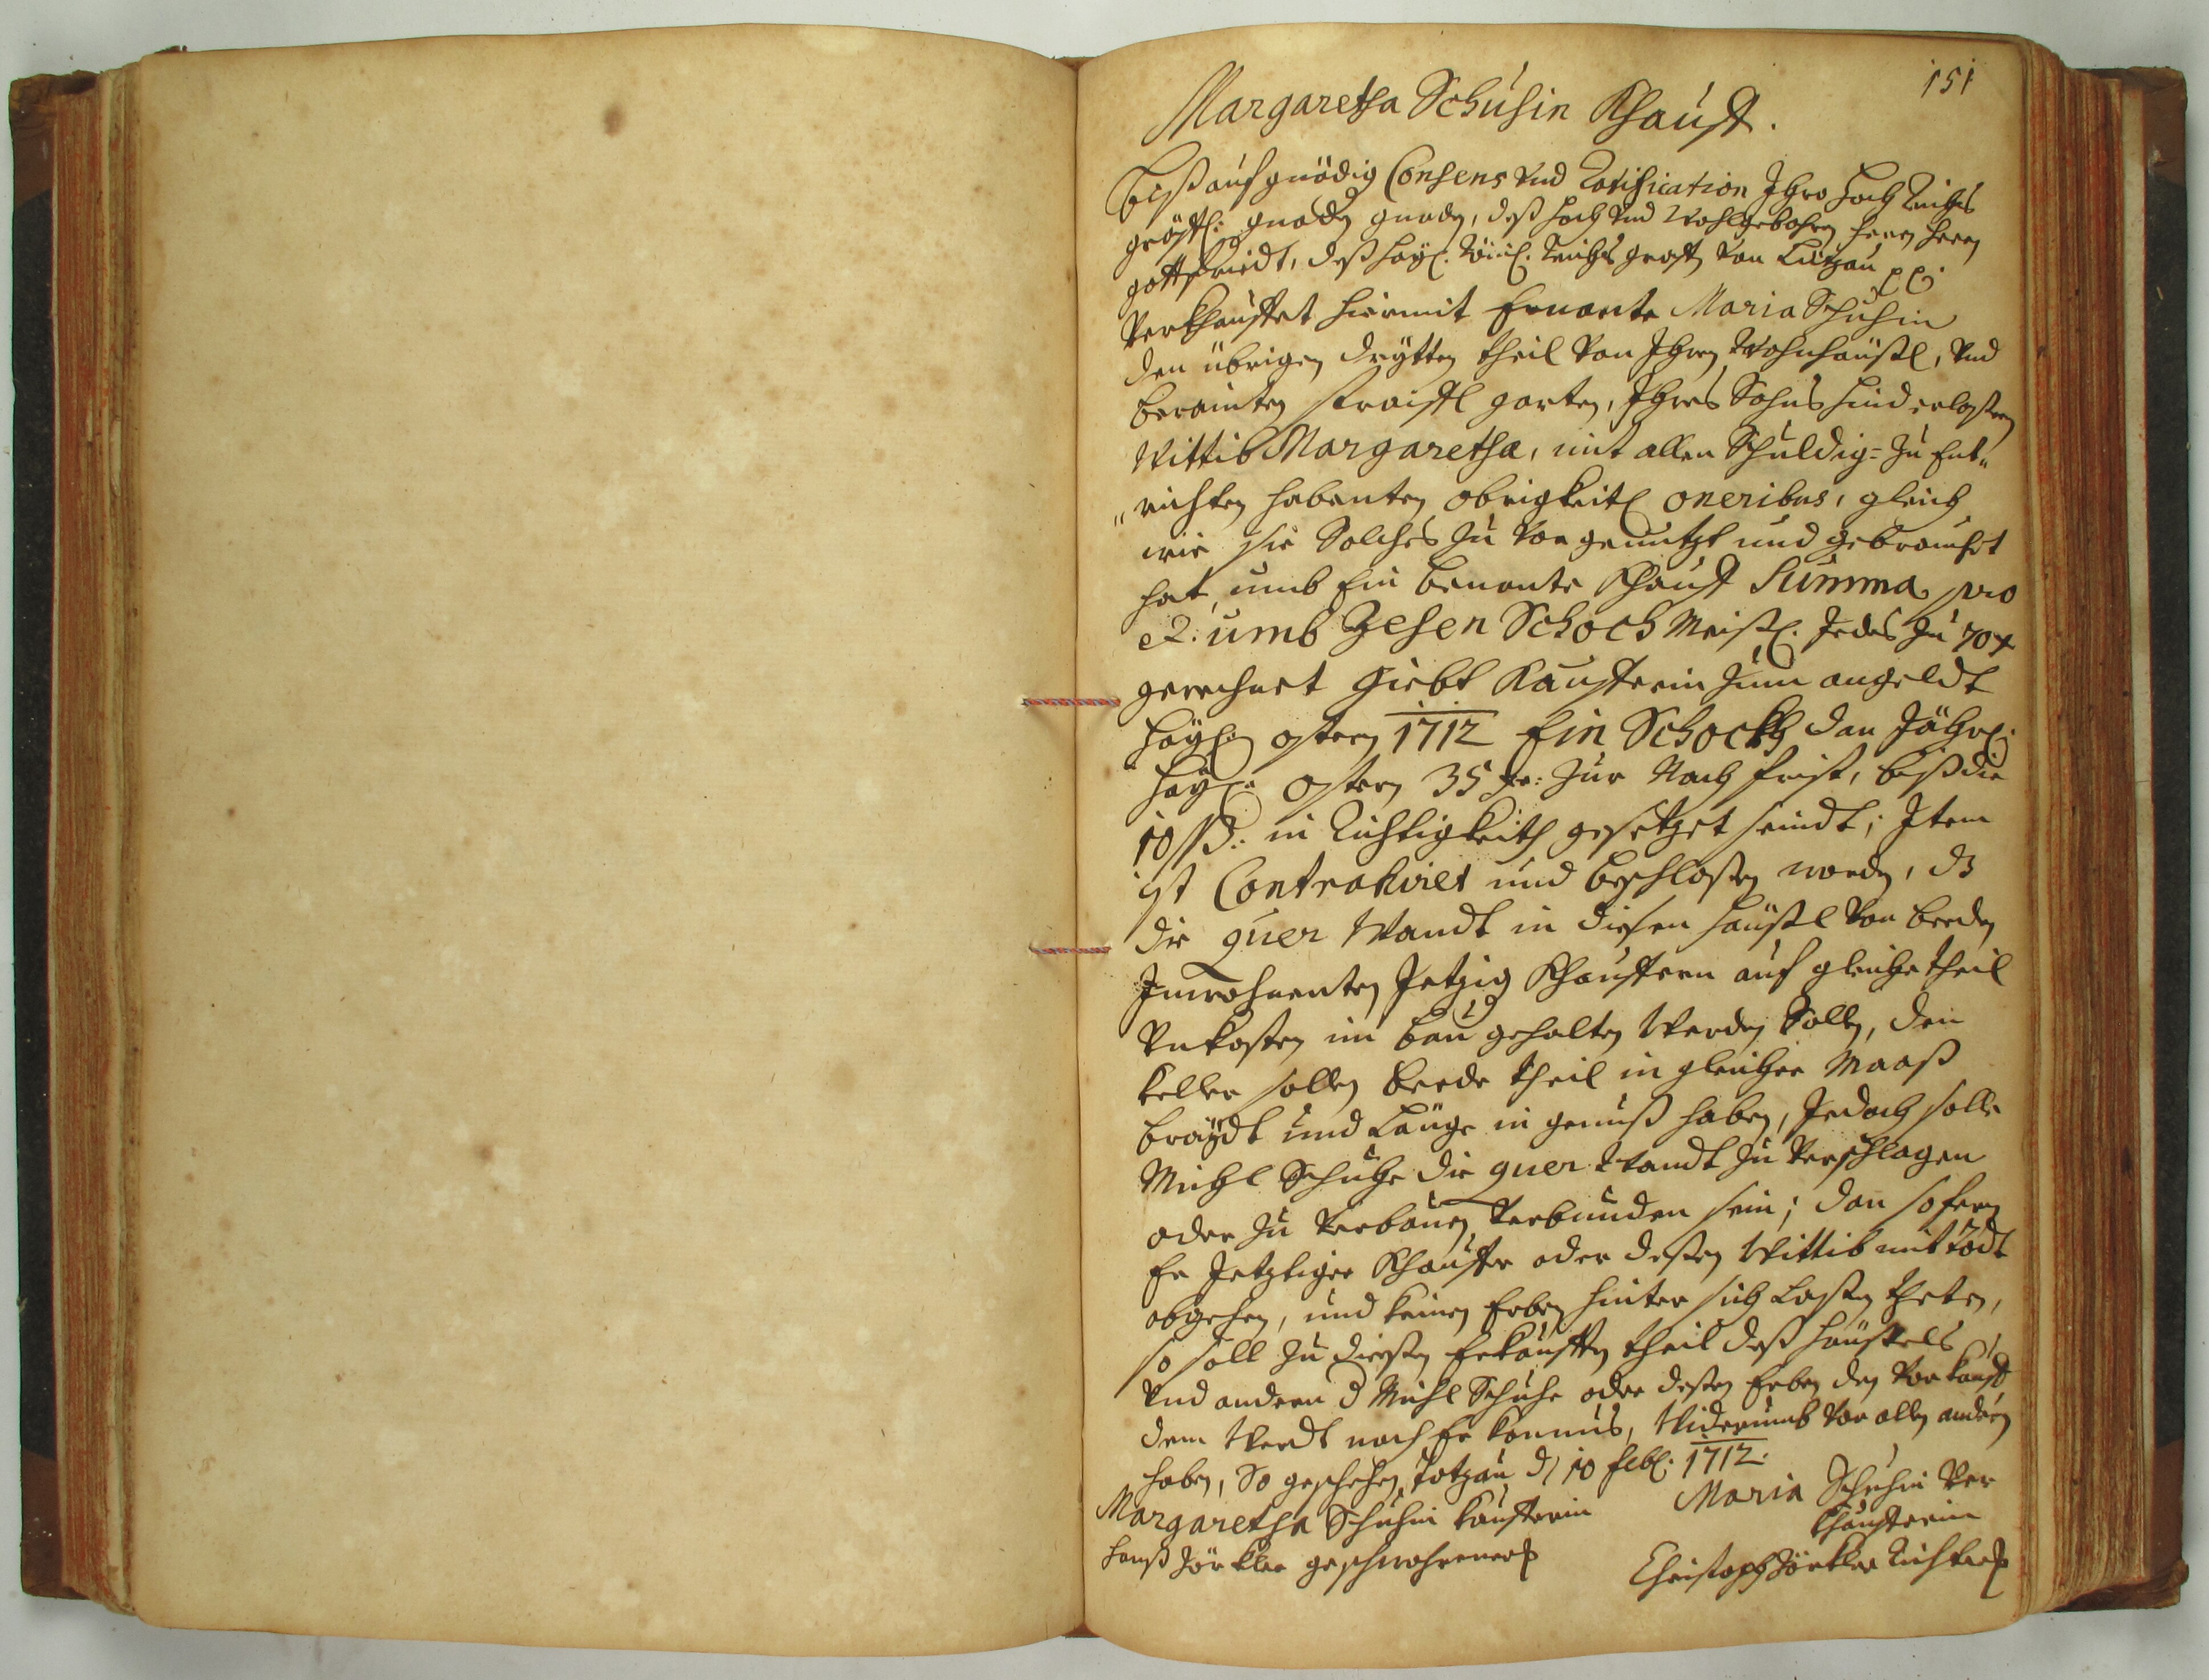 151
Margaretha Schuhin Khauff.
Biß auf gnädig Consens und Ratification Ihro Hoch Reichs
gräffl: gnaden gnaden, deß Hoch und Wohlgebohrn Herrn Herrn
Gottfriedt, deß Heyl. Röm. Reichs graffen von Lüzau
Verkhauffet hiermit Ernante Maria Schuhin
den übrigen drytten theil von Ihren Wohnhäußl, und
berainten garten, Ihres Sohns hinderlaßen
Wittib Margaretha, mit allen Schuldig= zu Ent„
„richten habenten obrigkeitl oneribus, gleich
wie sie Solches zu vor genutzt und gebrauchet
hat, umb Ein benante Khauff Summa pro
umb Zehen Schoch Meißl. Jedes zu 70 x
gerechnet giebt Kaufferin zum angeldt
Heyl: ostern 1712 Ein Schockh dan Jährl:
Heyl: ostern 35 xr: zur Nach frist, biß die
10 ßß: in Richtigkeith gesetzet seindt; Item
ist Contrahiret und beschloßen worden, dz
die quer Wandt in diesen häußl von beeden
Inwohnenten Jetzig Khauffern auf gleiche theil
Unkosten im bau gehalten Werden Solle, den
keller sollen beede theil in gleicher Maaß
braydt und Länge in genuß haben, Jedoch solle
Michl Schuhe die quer Wandt zu Verschlagen
oder zu Verbauen Verbunden sein; dan sofern
Er Jetztiger Khauffer oder deßen Wittib mit Todt
abgehen, und keinen Erben hinter sich Laßen theten,
so soll zu dießen Erkaufften theil deß häußels
und andern d Michl Schuhe oder deßen Erben den Vorkauff
dem Werdt nach Er kommus, Widerumb vor allen andern
haben, So geschehen Totzau d 10 Febl. 1712.
Margaretha Schuhin Kaufferin
Maria Schuhin Ver
khaufferin
Hanß Görkler geschwohrener
Christoph Görkler Richter